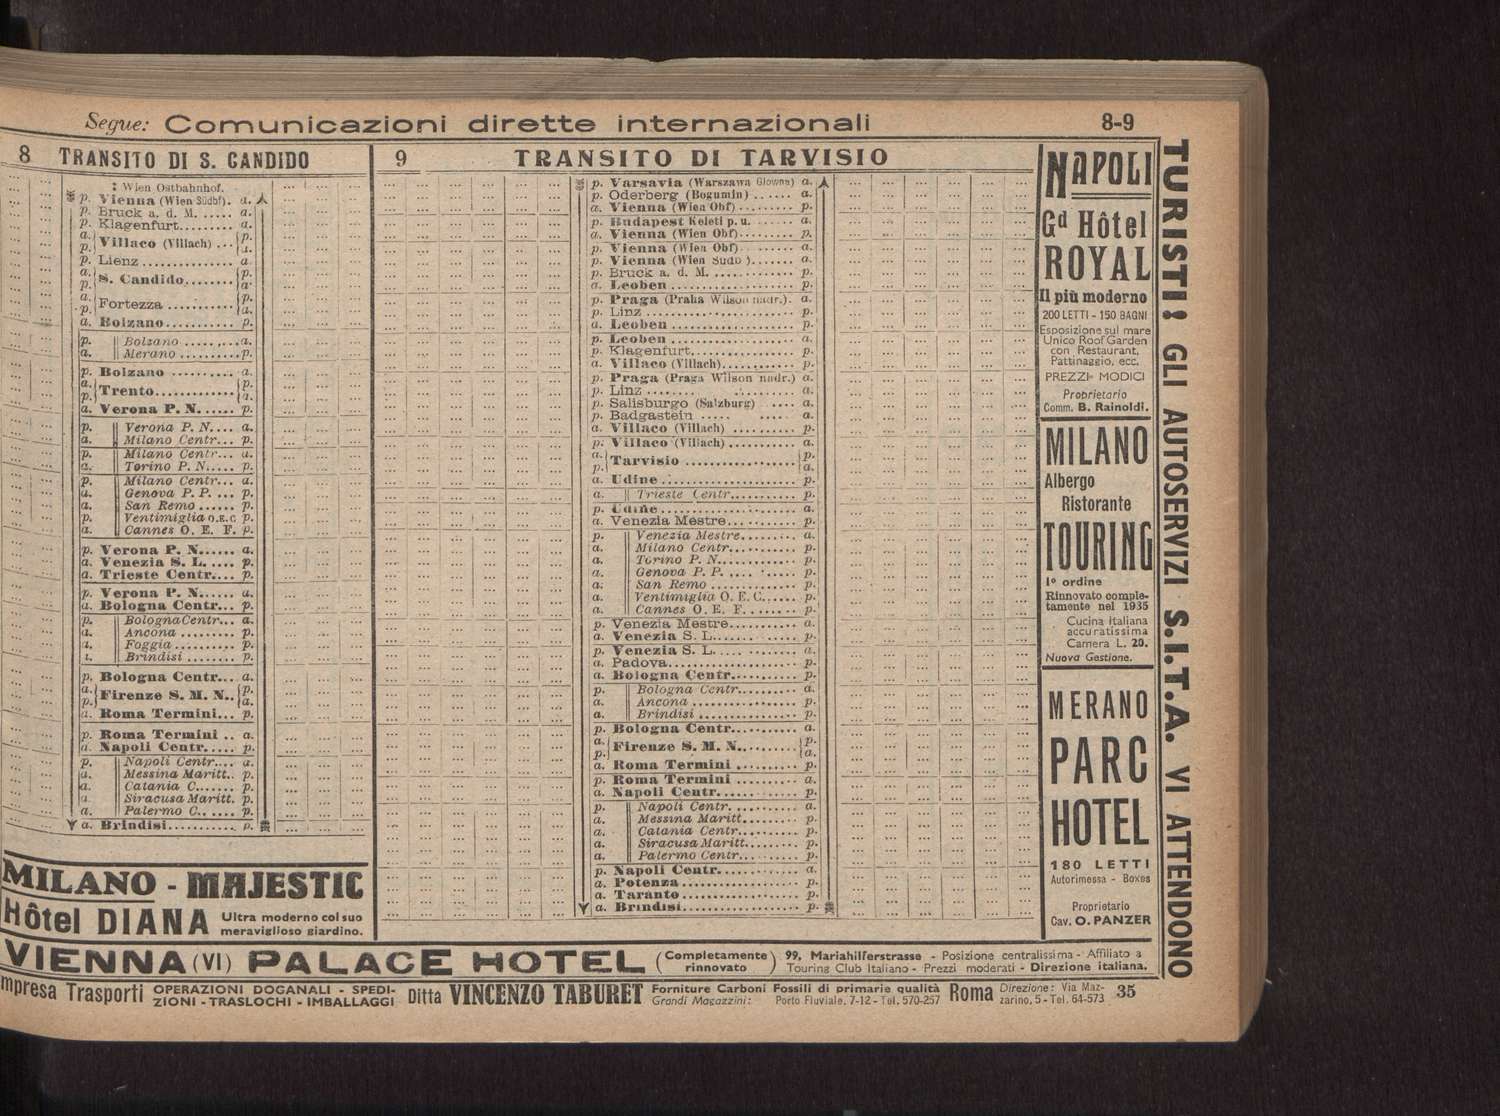 Segue: Comunicazioni dirette internazionali 8-9
8 TRANSITO DI S. CANDIDO
: Wien Ostbahnhof.
p. Vienna (Wien Südbf). a.
p. Bruck a. d. M. ..... a.
p. Klagenfurt........ a.
a. p. Villaco (Villach) ... p. a.
p. Lienz .............. a
a. p. S. Candido....... p. a.
a. p. Fortezza .......... p. a.
a. Bolzano.......... p.
p. Bolzano ........a.
a. Merano ..........p.
p. Bolzano ......... a.
a. p. Trento............ p. a.
a. Verona P. N...... p.
p. Verona P. N.... a.
a. Milano Centr... p.
p. Milano Centr... a.
a. Torino P. N..... p.
p. Milano Centr... a.
a. Genova P. P. ... p.
a. San Remo ...... p.
p. Ventimiglia O.E.C p.
a. Cannes O. E. F. p.
p. Verona P. N...... a.
a. Venezia S. L..... p.
a. Trieste Centr.... p.
p. Verona P. N...... a.
a. Bologna Centr... p.
p. Bologna Centr... a.
a. Ancona ......... p.
a. Foggia .......... p.
a. Brindisi ........ p.
p. Bologna Centr... a.
a. p. Firenze S. M. N.. p. a.
a. Roma Termini... p.
p. Roma Termini .. a.
a. Napoli Centr..... p.
p. Napoli Centr.... a.
a. Messina Maritt.. p.
a. Catania C....... p.
a. Siracusa Maritt. p.
a. Palermo C.. .... p.
a. Brindisi........... p.
9 TRANSITO DI TARVISIO
p. Varsavia (Warszawa Glowna) a.
p. Oderberg (Bogumin) ...... a.
a. Vienna (Wien Obf)........ p.
p. Budapest Keleti p.u. ..... a.
a. Vienna (Wien Obf)........ p.
p. Vienna (Wien Obf)........ a.
p. Vienna (Wien Sudb )...... a.
p. Bruck a. d. M. ............ p.
a. Leoben .................. p.
p. Praga (Praha Wilson nadr.). a.
p. Linz ...................... p.
a. Leoben .................. p.
p. Leoben .................. a.
p. Klagenfurt................ p.
a. Villaco (Villach)........... p.
p. Praga (Praga Wilson nadr.) a.
p. Linz ........ a.
p. Salisburgo (Salzburg) ..... a.
p. Badgastein ..... ..... a.
a. Villaco (Villach) ......... p.
p. Villaco (Villach) .......... a.
a. p. Tarvisio ................. p. a.
a. Udine ................... p.
a. Trieste Centr.......... p.
p. Udine.................... a.
a. Venezia Mestre........... p.
p. Venezia Mestre........ a.
a. Milano Centr.......... p.
a. Torino P. N........... p.
a. Genova P. P. .... ..... p.
a. San Remo ............ p.
a. Ventimiglia O. E. C..... p.
a. Cannes O. E. F........ p.
p. Venezia Mestre........... a.
a. Venezia S. L............. p.
p. Venezia S. L............. a.
a. Padova................... p.
a. Bologna Centr........... p.
p. Bologna Centr......... a.
a. Ancona .............. p.
a. Brindisi .............. p.
p. Bologna Centr........... a.
a. p. Firenze S. M. N.......... p. a.
a. Roma Termini .......... p.
p. Roma Termini .......... a.
a. Napoli Centr............ p.
p. Napoli Centr. ......... a.
a. Messina Maritt........ p.
a. Catania Centr......... p.
a. Siracusa Maritt....... p.
a. Palermo Centr........ p.
p. Napoli Centr............ a.
a. Potenza ................. p.
a. Taranto ................. p.
a. Brindisi................. p.
NAPOLI
Gd Hôtel
ROYAL
Il più moderno
200 LETTI - 150 BAGNI
Esposizione sul mare
Unico Roof Garden
con Restaurant,
Pattinaggio, ecc.
PREZZI MODICI
Proprietario
Comm. B. Rainoldi.
MILANO
Albergo
Ristorante
TOURING
1º ordine
Rinnovato comple-
tamente nel 1935
Cucina italiana
accuratissima
Camera L. 20.
Nuova Gestione.
MERANO
PARC
HOTEL
180 LETTI
Autorimessa - Boxes
Proprietario
Cav. O. PANZER
TURISTI! GLI AUTOSERVIZI S.I.T.A. VI ATTENDONO
MILANO - MAJESTIC
Hôtel DIANA Ultra moderno col suo
meraviglioso giardino.
VIENNA (VI) PALACE HOTEL (Completamente rinnovato) 99, Mariahilferstrasse - Posizione centralissima - Affiliato a
Touring Club Italiano - Prezzi moderati - Direzione italiana.
mpresa Trasporti OPERAZIONI DOGANALI - SPEDI-
ZIONI - TRASLOCHI - IMBALLAGGI Ditta VINCENZO TABURET Forniture Carboni Fossili di primarie qualità
Grandi Magazzini: Porto Fluviale, 7-12 - Tel. 570-257 Roma Direzione: Via Maz-
zarino, 5 - Tel. 64-573 35